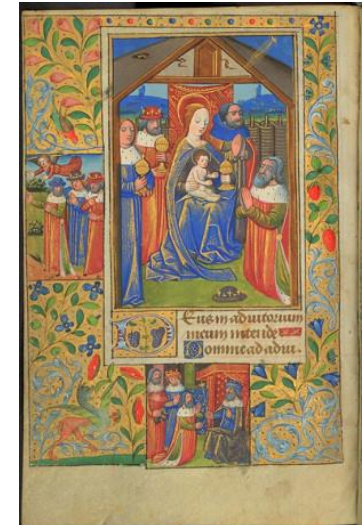 Eus in adiutorium
meum intende
Domine ad adiu.